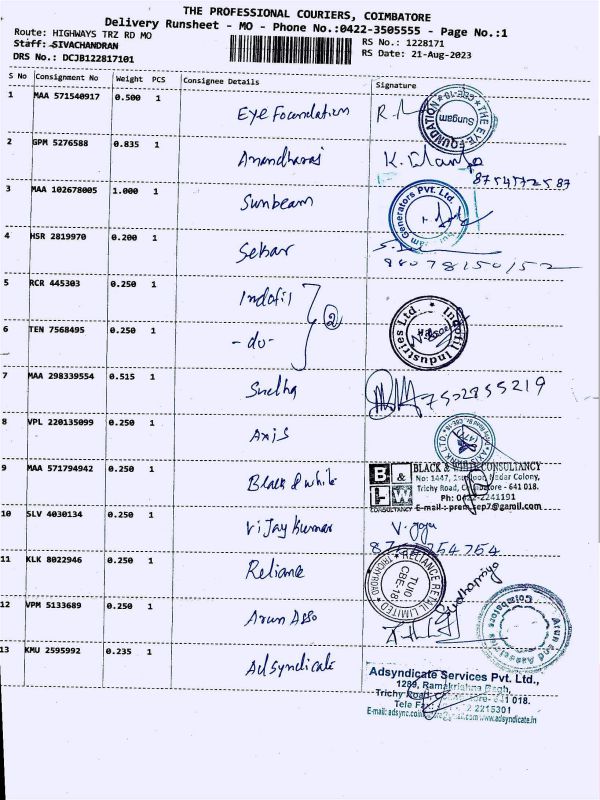 THE PROFESSIONAL COURIERS, COIMBATORE
Delivery Runsheet - MO - Phone No.:0422-3505555 - Page No.:1
Route: HIGHWAYS TRZ RD MO
RS No.: 1228171
Staff: SIVACHANDRAN
RS Date: 21-Aug-2023
DRS No.: DCJB122817101
S No Consignment No Weight PCS Consignee Details Signature
1 MAA 571540917 0.500 1 Eye Foundation
THE EYE FOUNDATION Sungam CBE-18
2 GPM 5276588 0.835 1 Anandharaj
8754572587
3 MAA 102678005 1.000 1 Sunbeam
Generators Pvt. Ltd.
4 HSR 2819970 0.200 1 Sebar
98078150152
5 RCR 445303 0.250 1 Indofil
2
Indofil Industries Ltd
6 TEN 7568495 0.250 1 -do-
7 MAA 298339554 0.515 1 Sneha
7502955219
8 VPL 220135099 0.250 1 Axis
9 MAA 571794942 0.250 1 Black & white
B & W CONSULTANCY
BLACK & WHITE CONSULTANCY
No: 1447, 1st Floor, Nadar Colony,
Trichy Road, Coimbatore - 641 018.
Ph: 0422-2241191
E-mail: prem.sep7@gamil.com
10 SLV 4030134 0.250 1 Vijay Kumar
11 KLK 8022946 0.250 1 Reliance
RELIANCE RETAIL LIMITED TRICHY ROAD TUIO CBE-18
12 VPM 5133689 0.250 1 Arun Asso
Arun and Associates Coimbatore
13 KMU 2595992 0.235 1 Adsyndicate
Adsyndicate Services Pvt. Ltd.,
1289, Ramakrishna Bagh,
Trichy Road, Coimbatore- 641 018.
2215301
www.adsyndicate.in